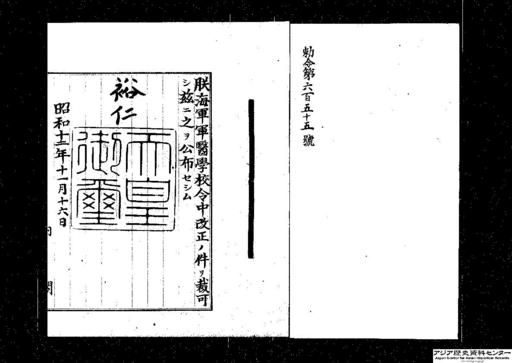 勅令第六百五十五號
朕海軍軍醫學校令中改正ノ件ヲ裁可
シ茲ニ之ヲ公布セシム
裕仁
天皇御璽
昭和十二年十一月十六日
アジア歴史資料センター
Japan Center for Asian Historical Records